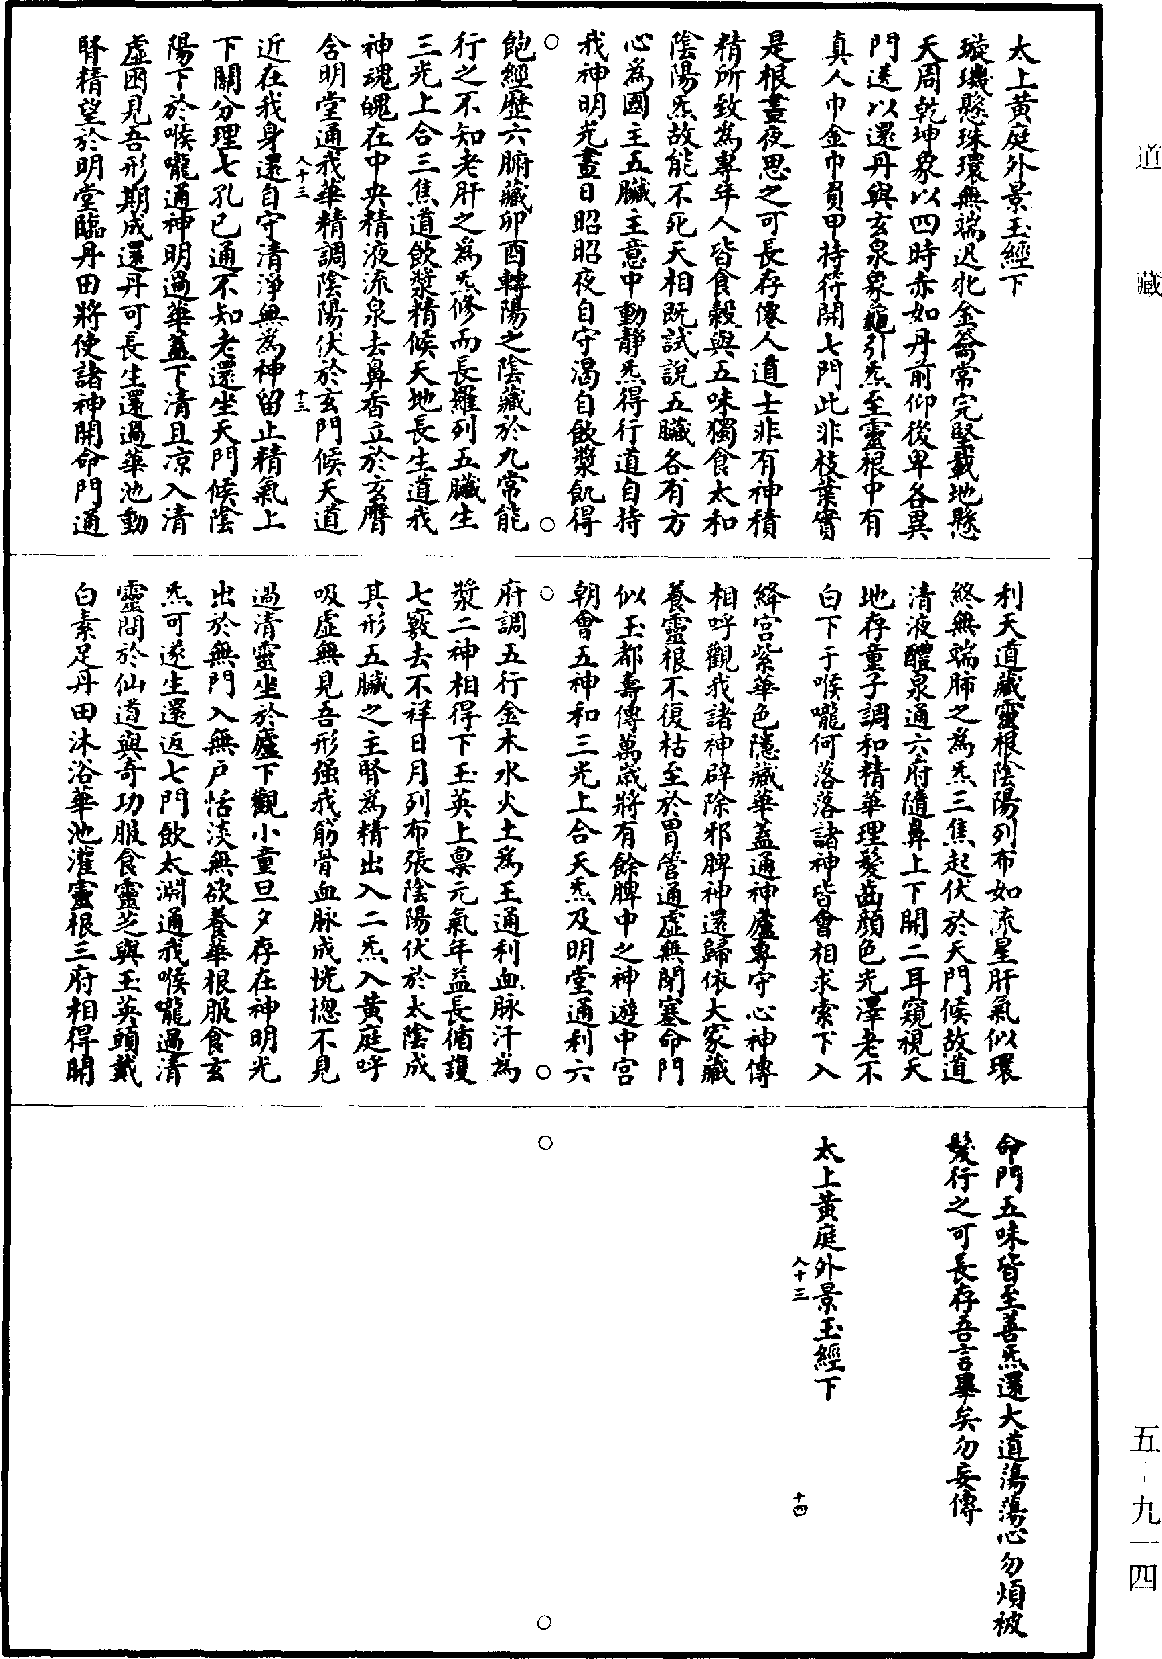 道藏
太上黃庭外景玉經下
璇璣懸珠環無端迟牝金籥常完堅載地懸
天周乾坤象以四時赤如丹前仰後卑各異
門送以還丹與玄泉象龜引炁至靈根中有
真人巾金巾負甲持符開七門此非枝葉實
是根晝夜思之可長存僊人道士非有神積
精所致為專年人皆食穀與五味獨食太和
陰陽炁故能不死天相既試說五臟各有方
心為國主五臟主意中動靜炁得行道自持
我神明光晝日昭昭夜自守渴自飲漿飢得
飽經歷六腑藏卯酉轉陽之陰藏於九常能
行之不知老肝之為炁修而長羅列五臟生
三光上合三焦道飲漿精候天地長生道我
神魂魄在中央精液流泉去鼻香立於玄膺
含明堂通我華精調陰陽伏於玄門候天道
八十三
十三
近在我身還自守清淨無為神留止精氣上
下關分理七孔已通不知老還坐天門候陰
陽下於喉嚨通神明過華蓋下清且凉入清
虛困見吾形期成還丹可長生還過華池動
腎精望於明堂臨丹田將使諸神開命門通
利天道藏靈根陰陽列布如流星肝氣似環
終無端肺之為炁三焦起伏於天門候故道
清液醴泉通六府隨鼻上下開二耳窺視天
地存童子調和精華理髮齒顏色光澤老不
白下于喉嚨何落落諸神皆會相求索下入
絳宮紫華色隱藏華蓋通神廬專守心神傳
相呼觀我諸神辟除邪脾神還歸依大家藏
養靈根不復枯至於胃管通虛無閉塞命門
似玉都壽傳萬歲將有餘脾中之神遊中宮
朝會五神和三光上合天炁及明堂通利六
府調五行金木水火土為王通利血脉汗為
漿二神相得下玉英上禀元氣年益長循護
七竅去不祥日月列布張陰陽伏於太陰成
其形五臟之主腎為精出入二炁入黃庭呼
吸虛無見吾形强我筋骨血脉成恍惚不見
過清靈坐於廬下觀小童旦夕存在神明光
出於無門入無戶恬淡無欲養華根服食玄
炁可遂生還返七門飲太淵通我喉嚨過清
靈問於仙道與奇功服食靈芝與玉英頭戴
白素足丹田沐浴華池灌靈根三府相得開
命門五味皆至善炁還大道蕩蕩心勿煩被
髮行之可長存吾言畢矣勿妄傳
太上黃庭外景玉經下
八十三
十四
五-九一四